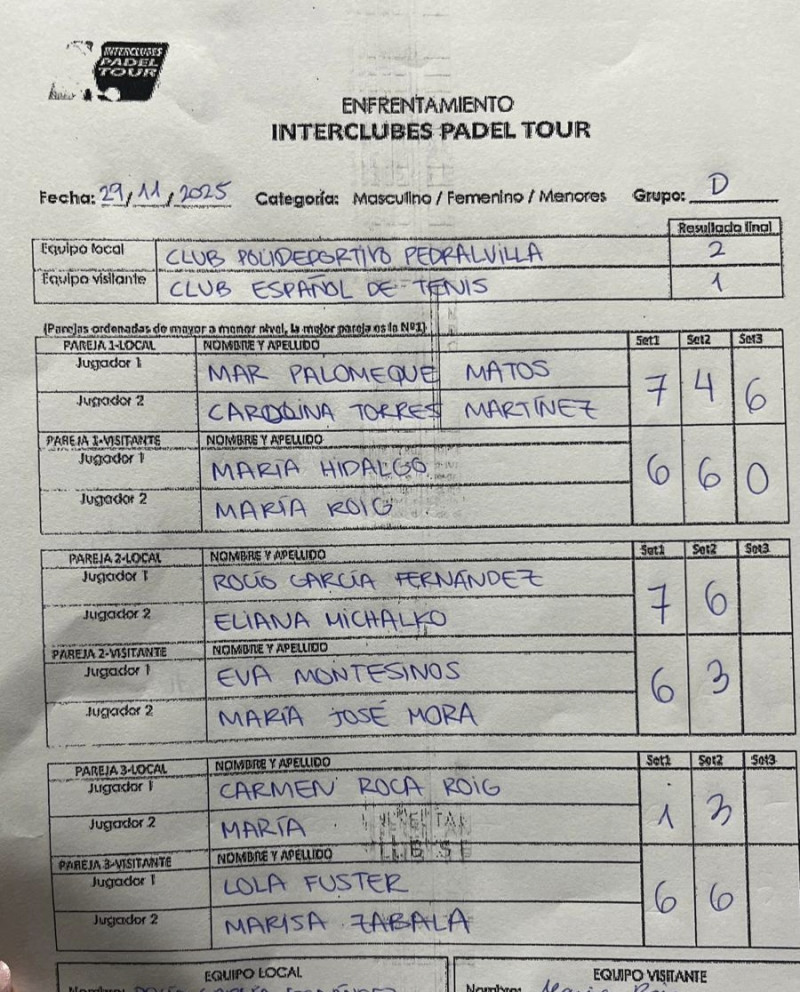 INTERCLUBES
PADEL
TOUR
ENFRENTAMIENTO
INTERCLUBES PADEL TOUR
Fecha: 29/11/2025 Categoría: Masculino / Femenino / Menores Grupo: D
Resultado final
Equipo local CLUB POLIDEPORTIVO PEDRALVILLA 2
Equipo visitante CLUB ESPAÑOL DE TENIS 1
(Parejas ordenadas de mayor a menor nivel, la mejor pareja es la Nº1)
PAREJA 1-LOCAL NOMBRE Y APELLIDO Set1 Set2 Set3
Jugador 1 MAR PALOMEQUE MATOS 7 4 6
Jugador 2 CAROLINA TORRES MARTÍNEZ
PAREJA 1-VISITANTE NOMBRE Y APELLIDO
Jugador 1 MARÍA HIDALGO 6 6 0
Jugador 2 MARÍA ROIG
PAREJA 2-LOCAL NOMBRE Y APELLIDO Set1 Set2 Set3
Jugador 1 ROCÍO GARCÍA FERNÁNDEZ 7 6
Jugador 2 ELIANA MICHALKO
PAREJA 2-VISITANTE NOMBRE Y APELLIDO
Jugador 1 EVA MONTESINOS 6 3
Jugador 2 MARÍA JOSÉ MORA
PAREJA 3-LOCAL NOMBRE Y APELLIDO Set1 Set2 Set3
Jugador 1 CARMEN ROCA ROIG 1 3
Jugador 2 MARÍA
PAREJA 3-VISITANTE NOMBRE Y APELLIDO
Jugador 1 LOLA FUSTER 6 6
Jugador 2 MARISA ZABALA
EQUIPO LOCAL EQUIPO VISITANTE
Nombre: ROCÍO GARCÍA FERNÁNDEZ Nombre: María